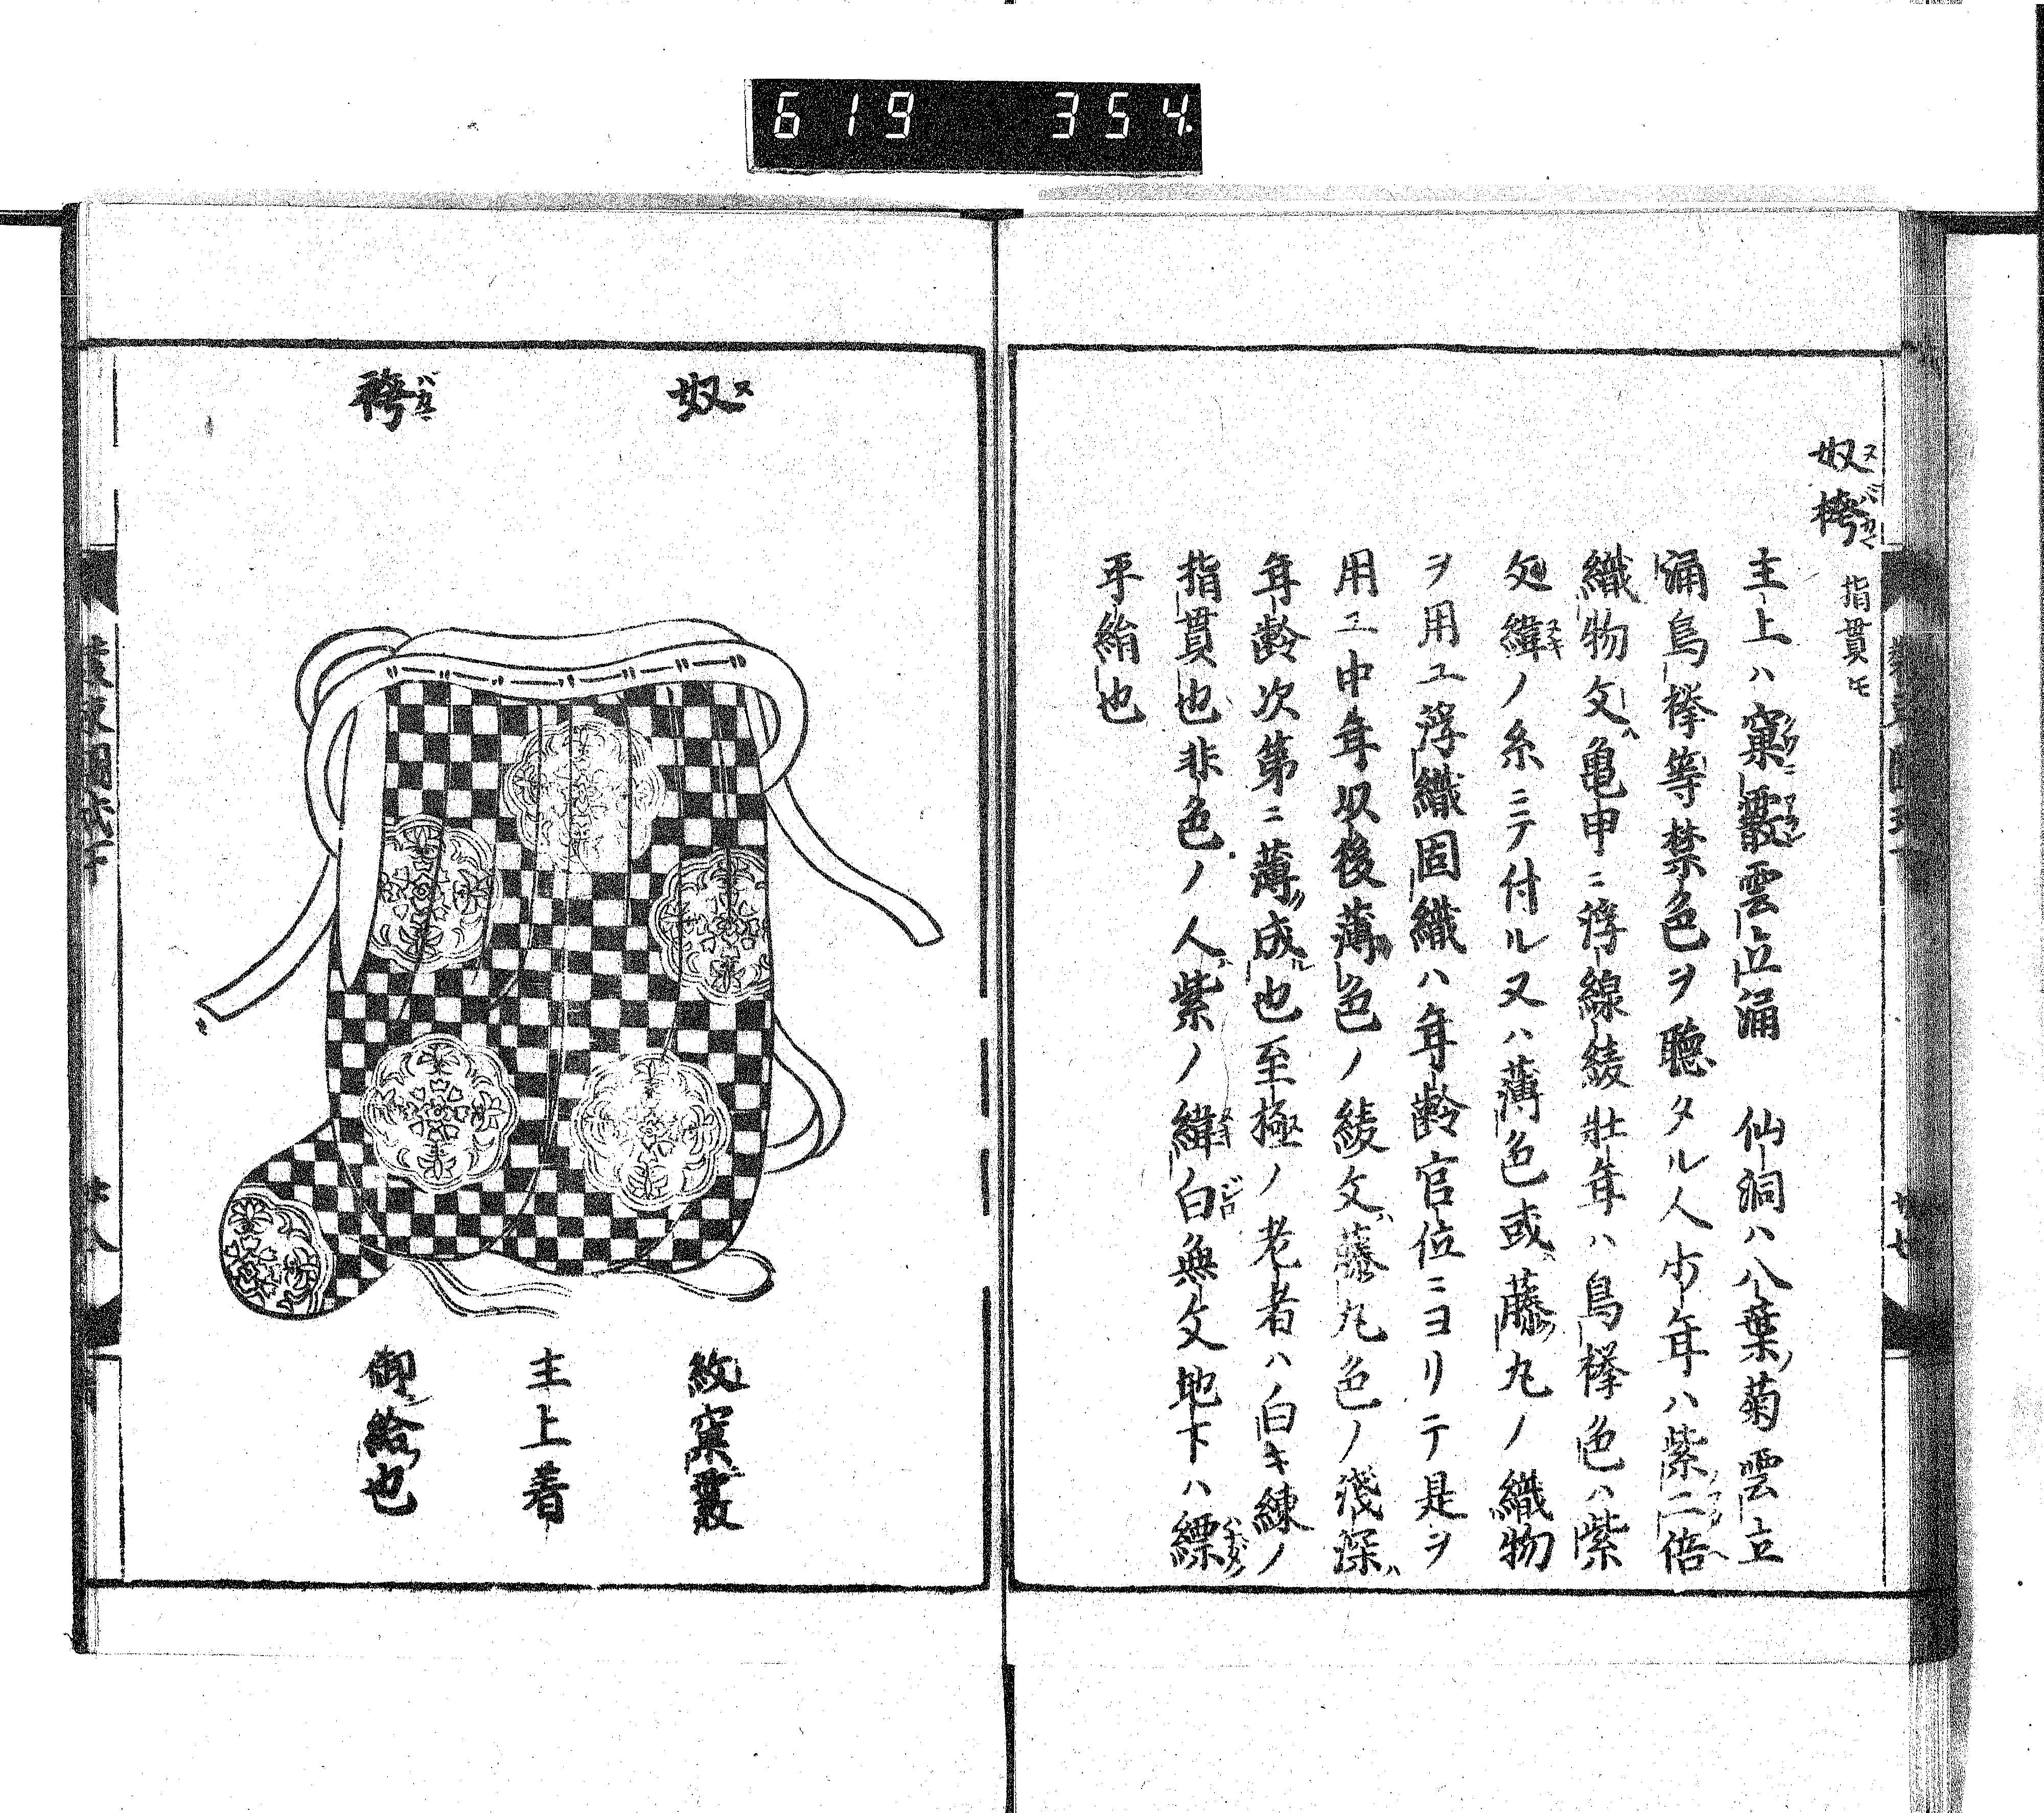 619 354
奴袴 指貫モ
主上ハ窠霰雲立涌 仙洞ハ八葉菊雲立
涌鳥襷等禁色ヲ聴タル人少年ハ紫二倍
織物文ハ亀甲ニ浮線綾壮年ハ鳥襷色ハ紫
処緯ノ糸ニテ付ル又ハ薄色或ハ藤丸ノ織物
ヲ用ユ浮織固織ハ年齢官位ニヨリテ是ヲ
用ユ中年以後薄色ノ綾文ハ藤丸色ノ浅深ハ
年齢次第ニ薄ク成ル也至極ノ老者ハ白キ練ノ
指貫也非色ノ人ハ紫ノ緯白無文地下ハ縹
平絹也
奴袴
紋窠霰
主上着
御給也